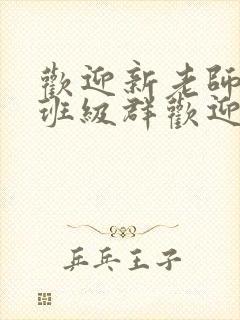 歡迎新老師
班級群歡迎
乒乓王子